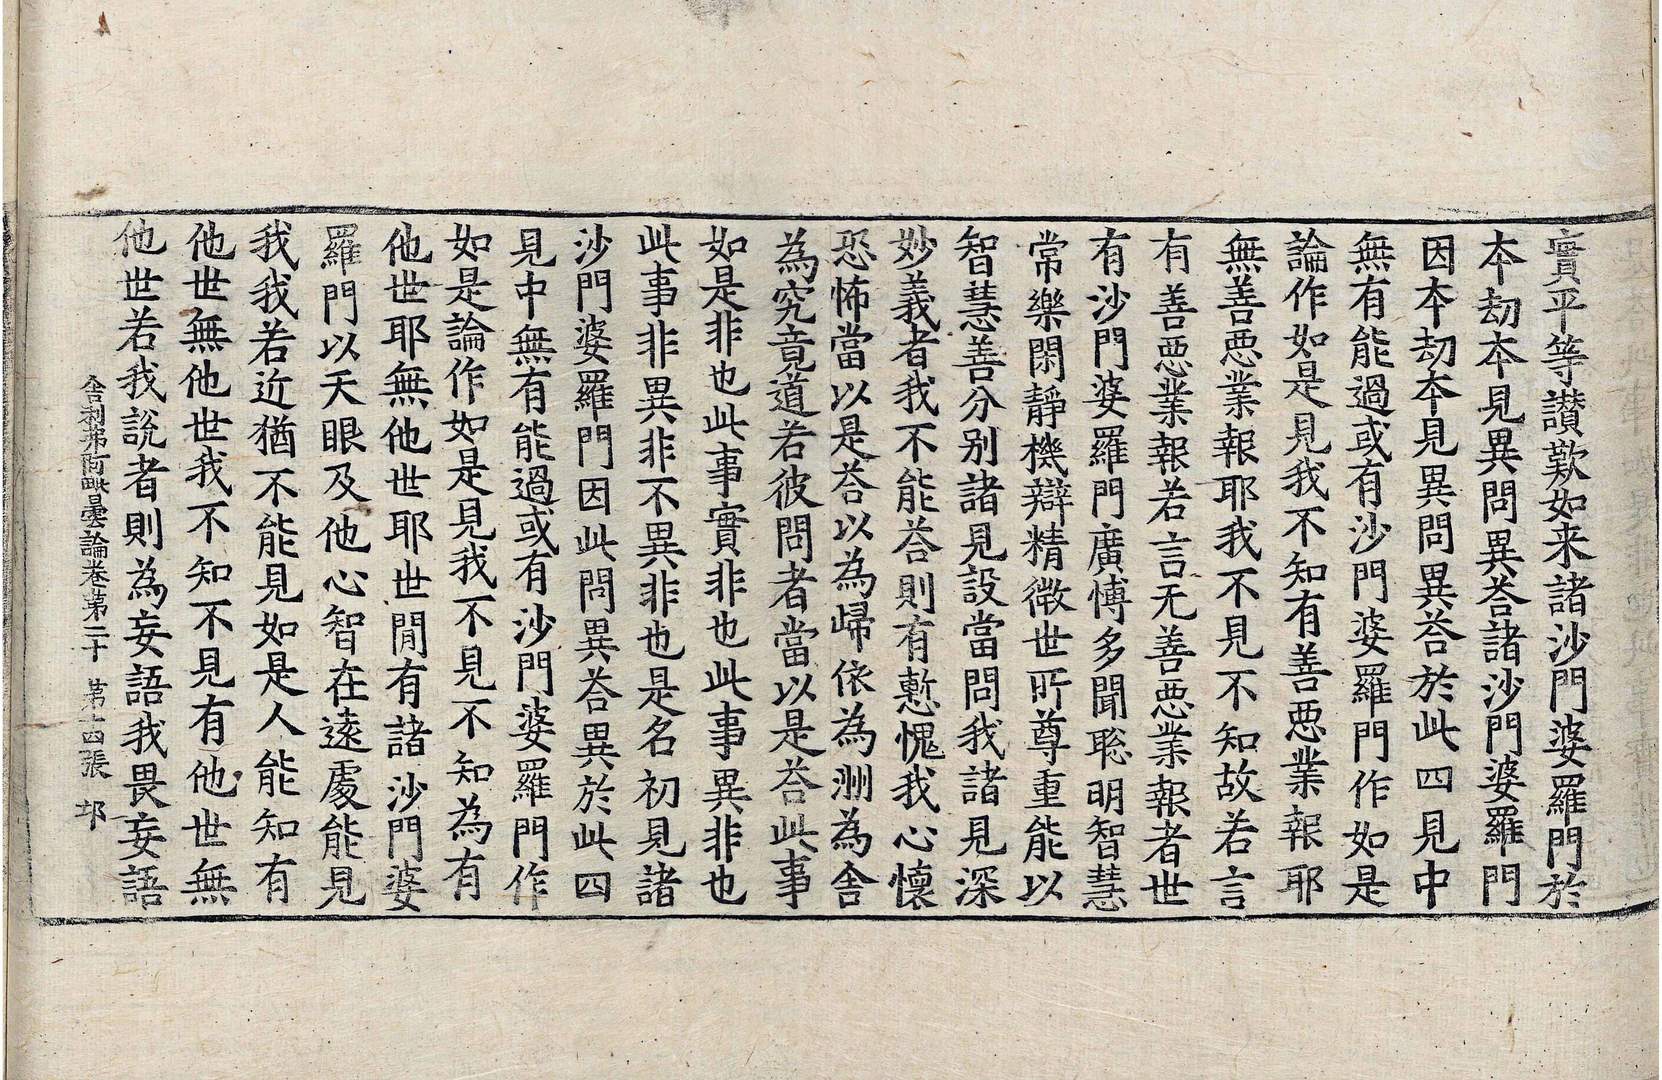 實平等讃歎如来諸沙門婆羅門於
本劫本見異問異荅諸沙門婆羅門
因本劫本見異問異荅於此四見中
無有能過或有沙門婆羅門作如是
論作如是見我不知有善惡業報耶
無善惡業報耶我不見不知故若言
有善惡業報若言无善惡業報者世
有沙門婆羅門廣愽多聞聡明智慧
常樂閑静機辯精微世所尊重能以
智慧善分别諸見設當問我諸見深
妙義者我不能荅則有慙愧我心懷
恐怖當以是荅以為歸依為洲為舎
為究竟道若彼問者當以是荅此事
如是非也此事實非也此事異非也
此事非異非不異非也是名初見諸
沙門婆羅門因此問異荅異於此四
見中無有能過或有沙門婆羅門作
如是論作如是見我不見不知為有
他世耶無他世耶世間有諸沙門婆
羅門以天眼及他心智在遠處能見
我我若近猶不能見如是人能知有
他世無他世我不知不見有他世無
他世若我說者則為妄語我畏妄語
舎利弗阿毗曇論卷第二十 第十四張 邙